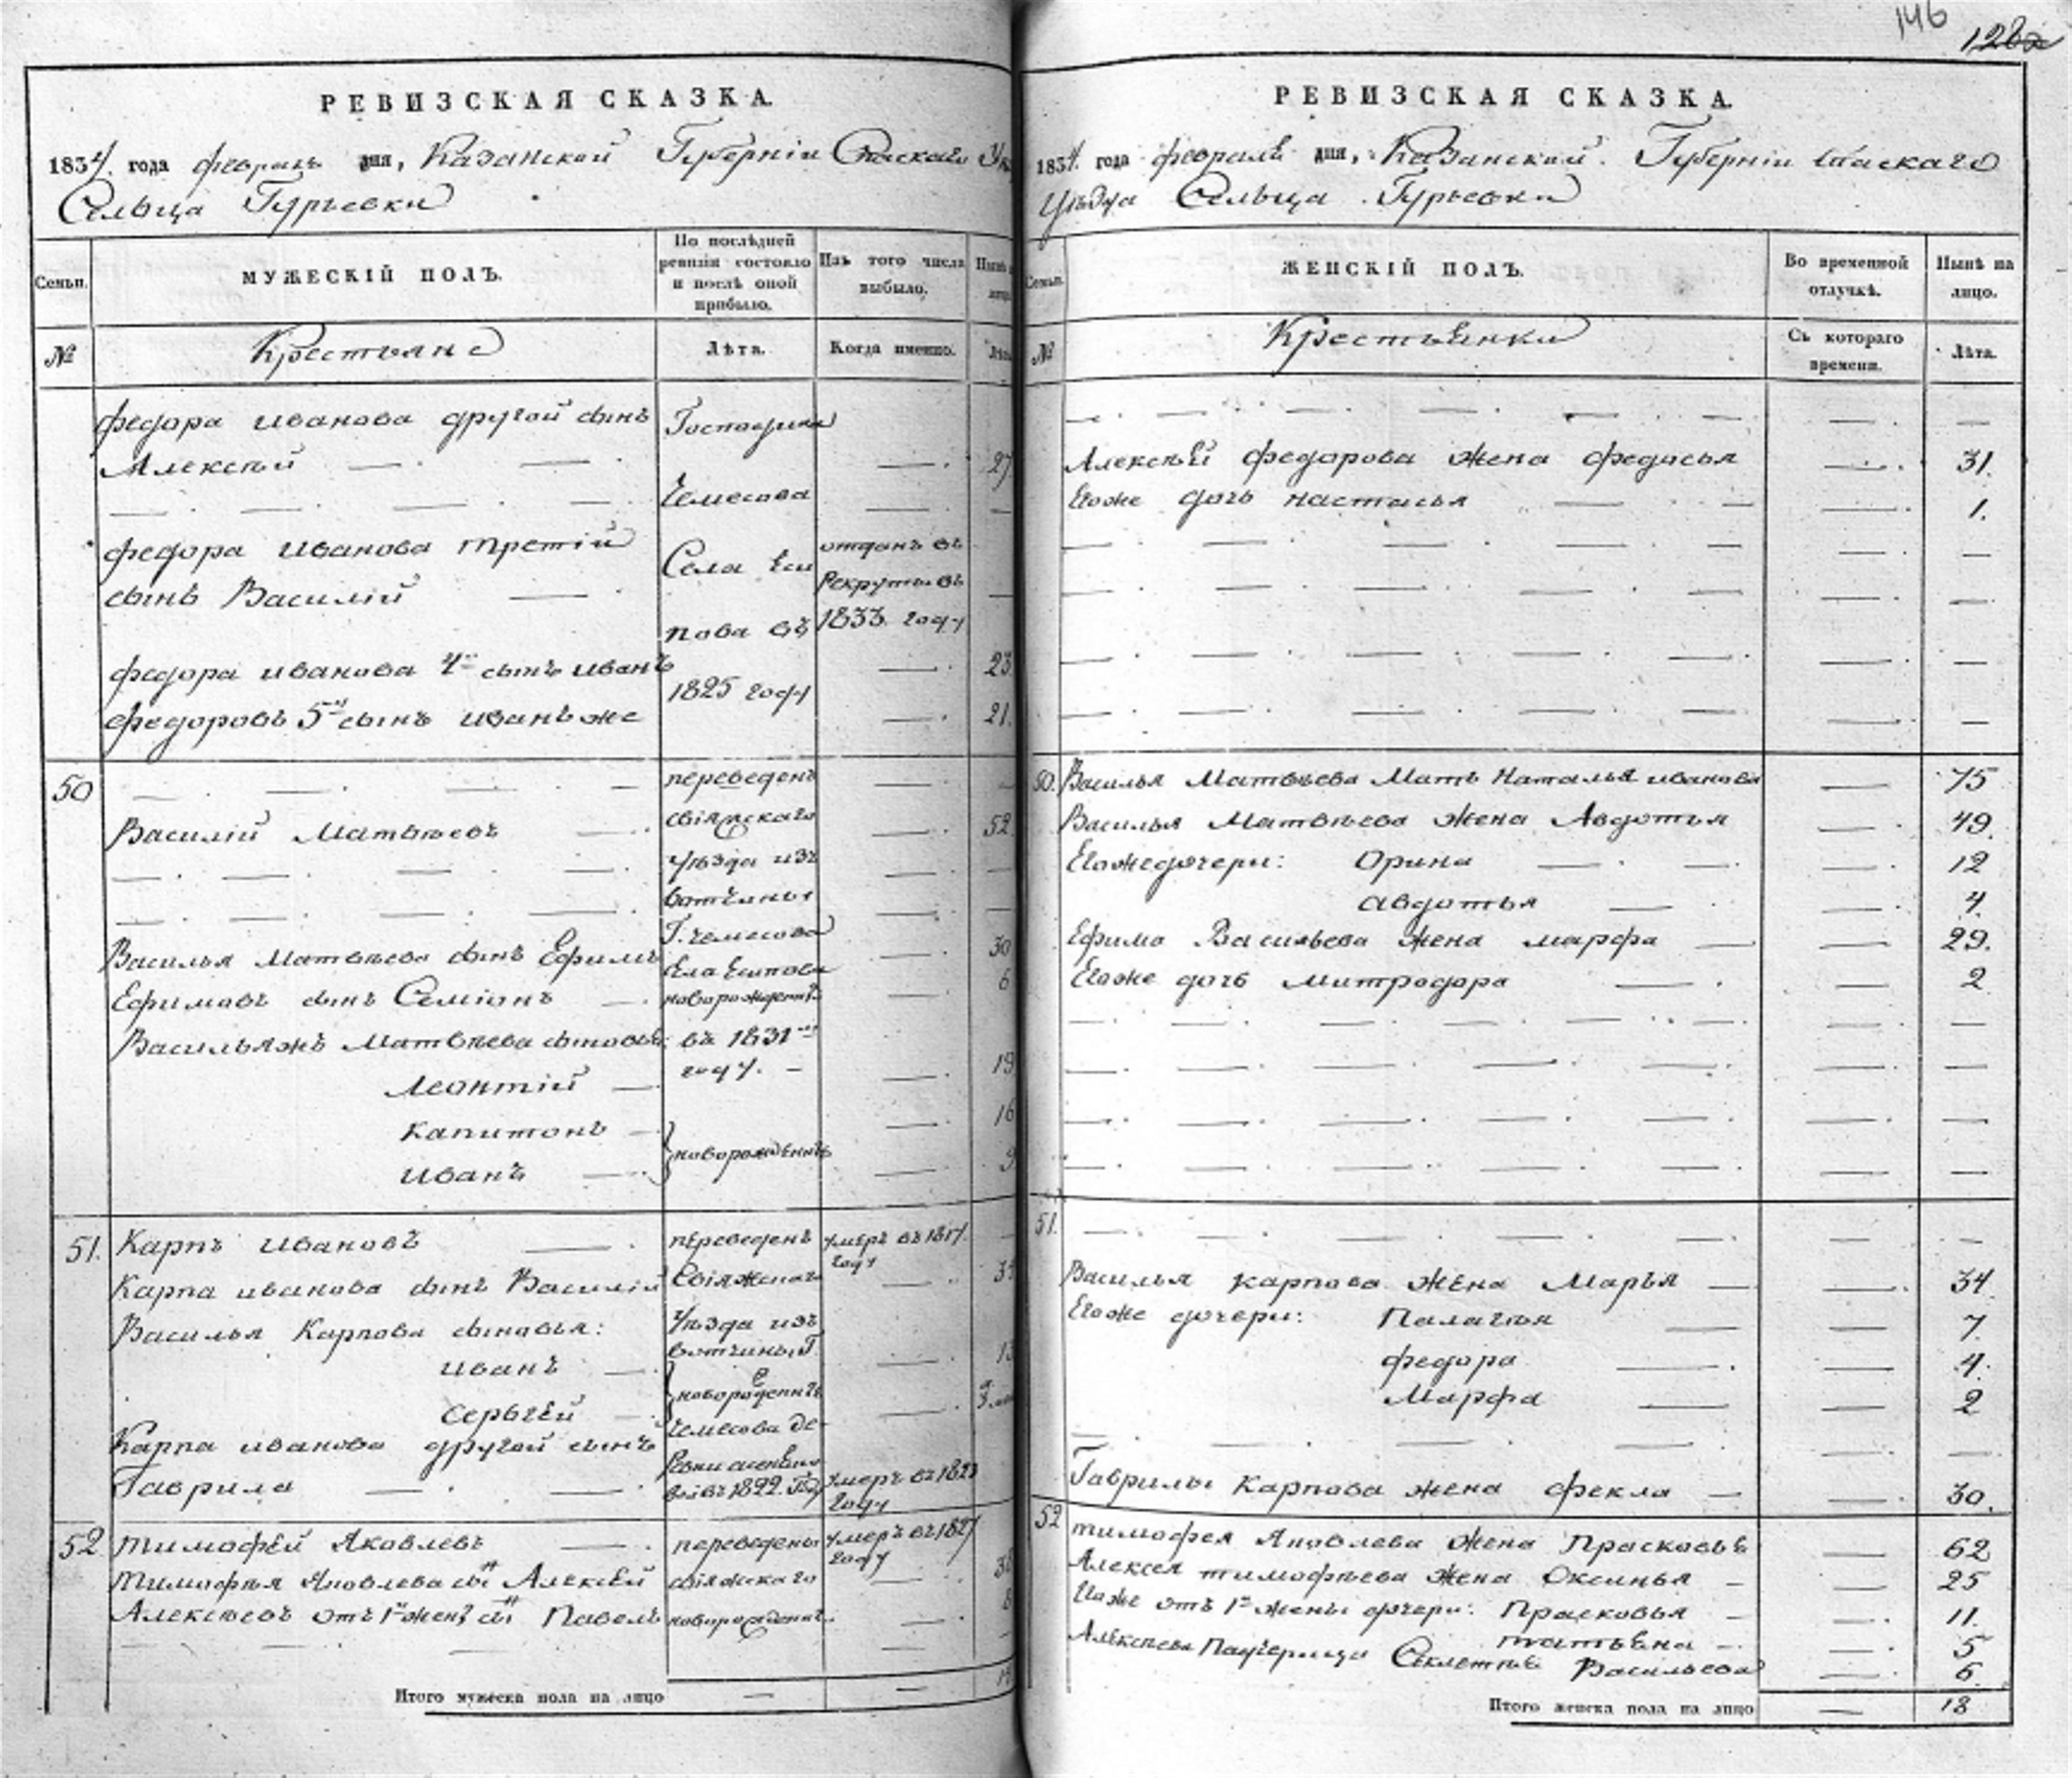 146
128
РЕВИЗСКАЯ СКАЗКА.
1834 года февраль дня, Казанской Губерніи Спаскаго
Сельца Гурьевки
Семьи. МУЖЕСКІЙ ПОЛЪ. По послѣдней ревизіи состояло и послѣ оной прибыло. Изъ того числа выбыло. Нынѣ
№ Крестьяне Лѣта. Когда именно. Лѣта
федора иванова другой сынъ Господина
Алексѣй — — — 27
Чемесова
федора иванова третій отданъ въ
Села Еси
сынъ Василій — рекруты въ
пова въ 1833 году
федора иванова 4й сынъ иванъ — 23
1825 году
федоровъ 5й сынъ иванъ же — 21.
50 переведенъ
Василій Матвѣевъ — свіяжскаго — 52
уѣзда изъ
вотчины
Г. Чемесова
Василья Матвѣева сынъ Ефимъ — 30
села Есипова
Ефимовъ сынъ Семіонъ — новорожденъ — 6
Васильяжъ Матвѣева сыновья: въ 1831м
году. —
Леонтій — — 19
Капитонъ — — 16
новорожденъ
Иванъ — — 9
51. Карпъ ивановъ — переведенъ умеръ въ
году
Карпа иванова сынъ Василій Свіяжскаго —
Василья Карпова сыновья: уѣзда изъ
вотчины Г.
иванъ — —
новорожденъ
Сергѣй — — 3
Чемесова де-
Карпа иванова другой сынъ
ревни
Гаврила — — въ 1822. умеръ въ
году
52 тимофей Яковлевъ — переведены умеръ въ 1827
году
тимофѣя Яковлева сынъ Алексѣй свіяжскаго —
Алексѣевъ отъ 1й жены сынъ Павелъ новорожденъ — 8
Итого мужеска пола на лицо — —
РЕВИЗСКАЯ СКАЗКА.
1834 года февраль дня, Казанской Губерніи Спаскаго
Уѣзда Сельца Гурьевки
Семьи. ЖЕНСКІЙ ПОЛЪ. Во временной отлучкѣ. Нынѣ на лицо.
№ Крестьянки Съ котораго времени. Лѣта.
Алексѣй федорова жена федосья — 31.
Егоже дочь настасья — 1.
50. Василья Матвѣева Мать Наталья иванова — 75
Василья Матвѣева жена Авдотья — 49.
Егожедочери: Орина — 12
авдотья — 4
Ефима Васильева жена марфа — 29.
Егоже дочь митродора — 2
51.
Василья карпова жена Марья — 34.
Егоже дочери: Палагѣя — 7
федора — 4.
Марфа — 2
Гаврилы Карпова жена фекла — 30.
52 тимофея Яковлева жена Прасковья — 62
Алексея тимофѣева жена Оксинья — 25
Егоже отъ 1й жены дочери: Прасковья — 11
татьена — 5
Алексѣева Падчерица Секлетнѣ Васильева — 6
Итого женска пола на лицо — 18